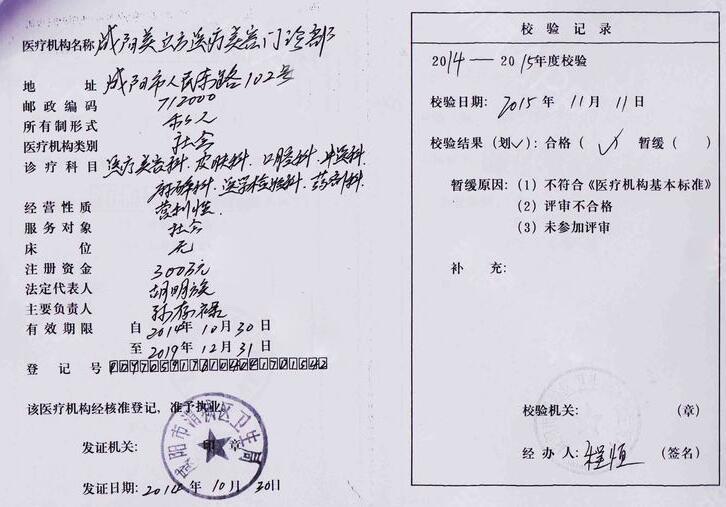 医疗机构名称 咸阳美立方医疗美容门诊部
地 址 咸阳市人民东路102号
邮政编码 712000
所有制形式 私人
医疗机构类别 社会
诊疗科目 医疗美容科、皮肤科、口腔科、中医科、
麻醉科、医学检验科、药剂科
经营性质 营利性
服务对象 社会
床 位 无
注册资金 300万元
法定代表人 胡明族
主要负责人 孙存禄
有效期限 自 2014年10月30日
至 2019年12月31日
登记号
该医疗机构经核准登记，准予执业。
发证机关： 印 章
咸阳市渭城区卫生局
发证日期：2014年10月30日
校验记录
2014——2015年度校验
校验日期：2015年11月11日
校验结果（划√）：合格（√）暂缓（ ）
暂缓原因：（1）不符合《医疗机构基本标准》
（2）评审不合格
（3）未参加评审
补 充：
校验机关： （章）
经办人：程恒（签名）